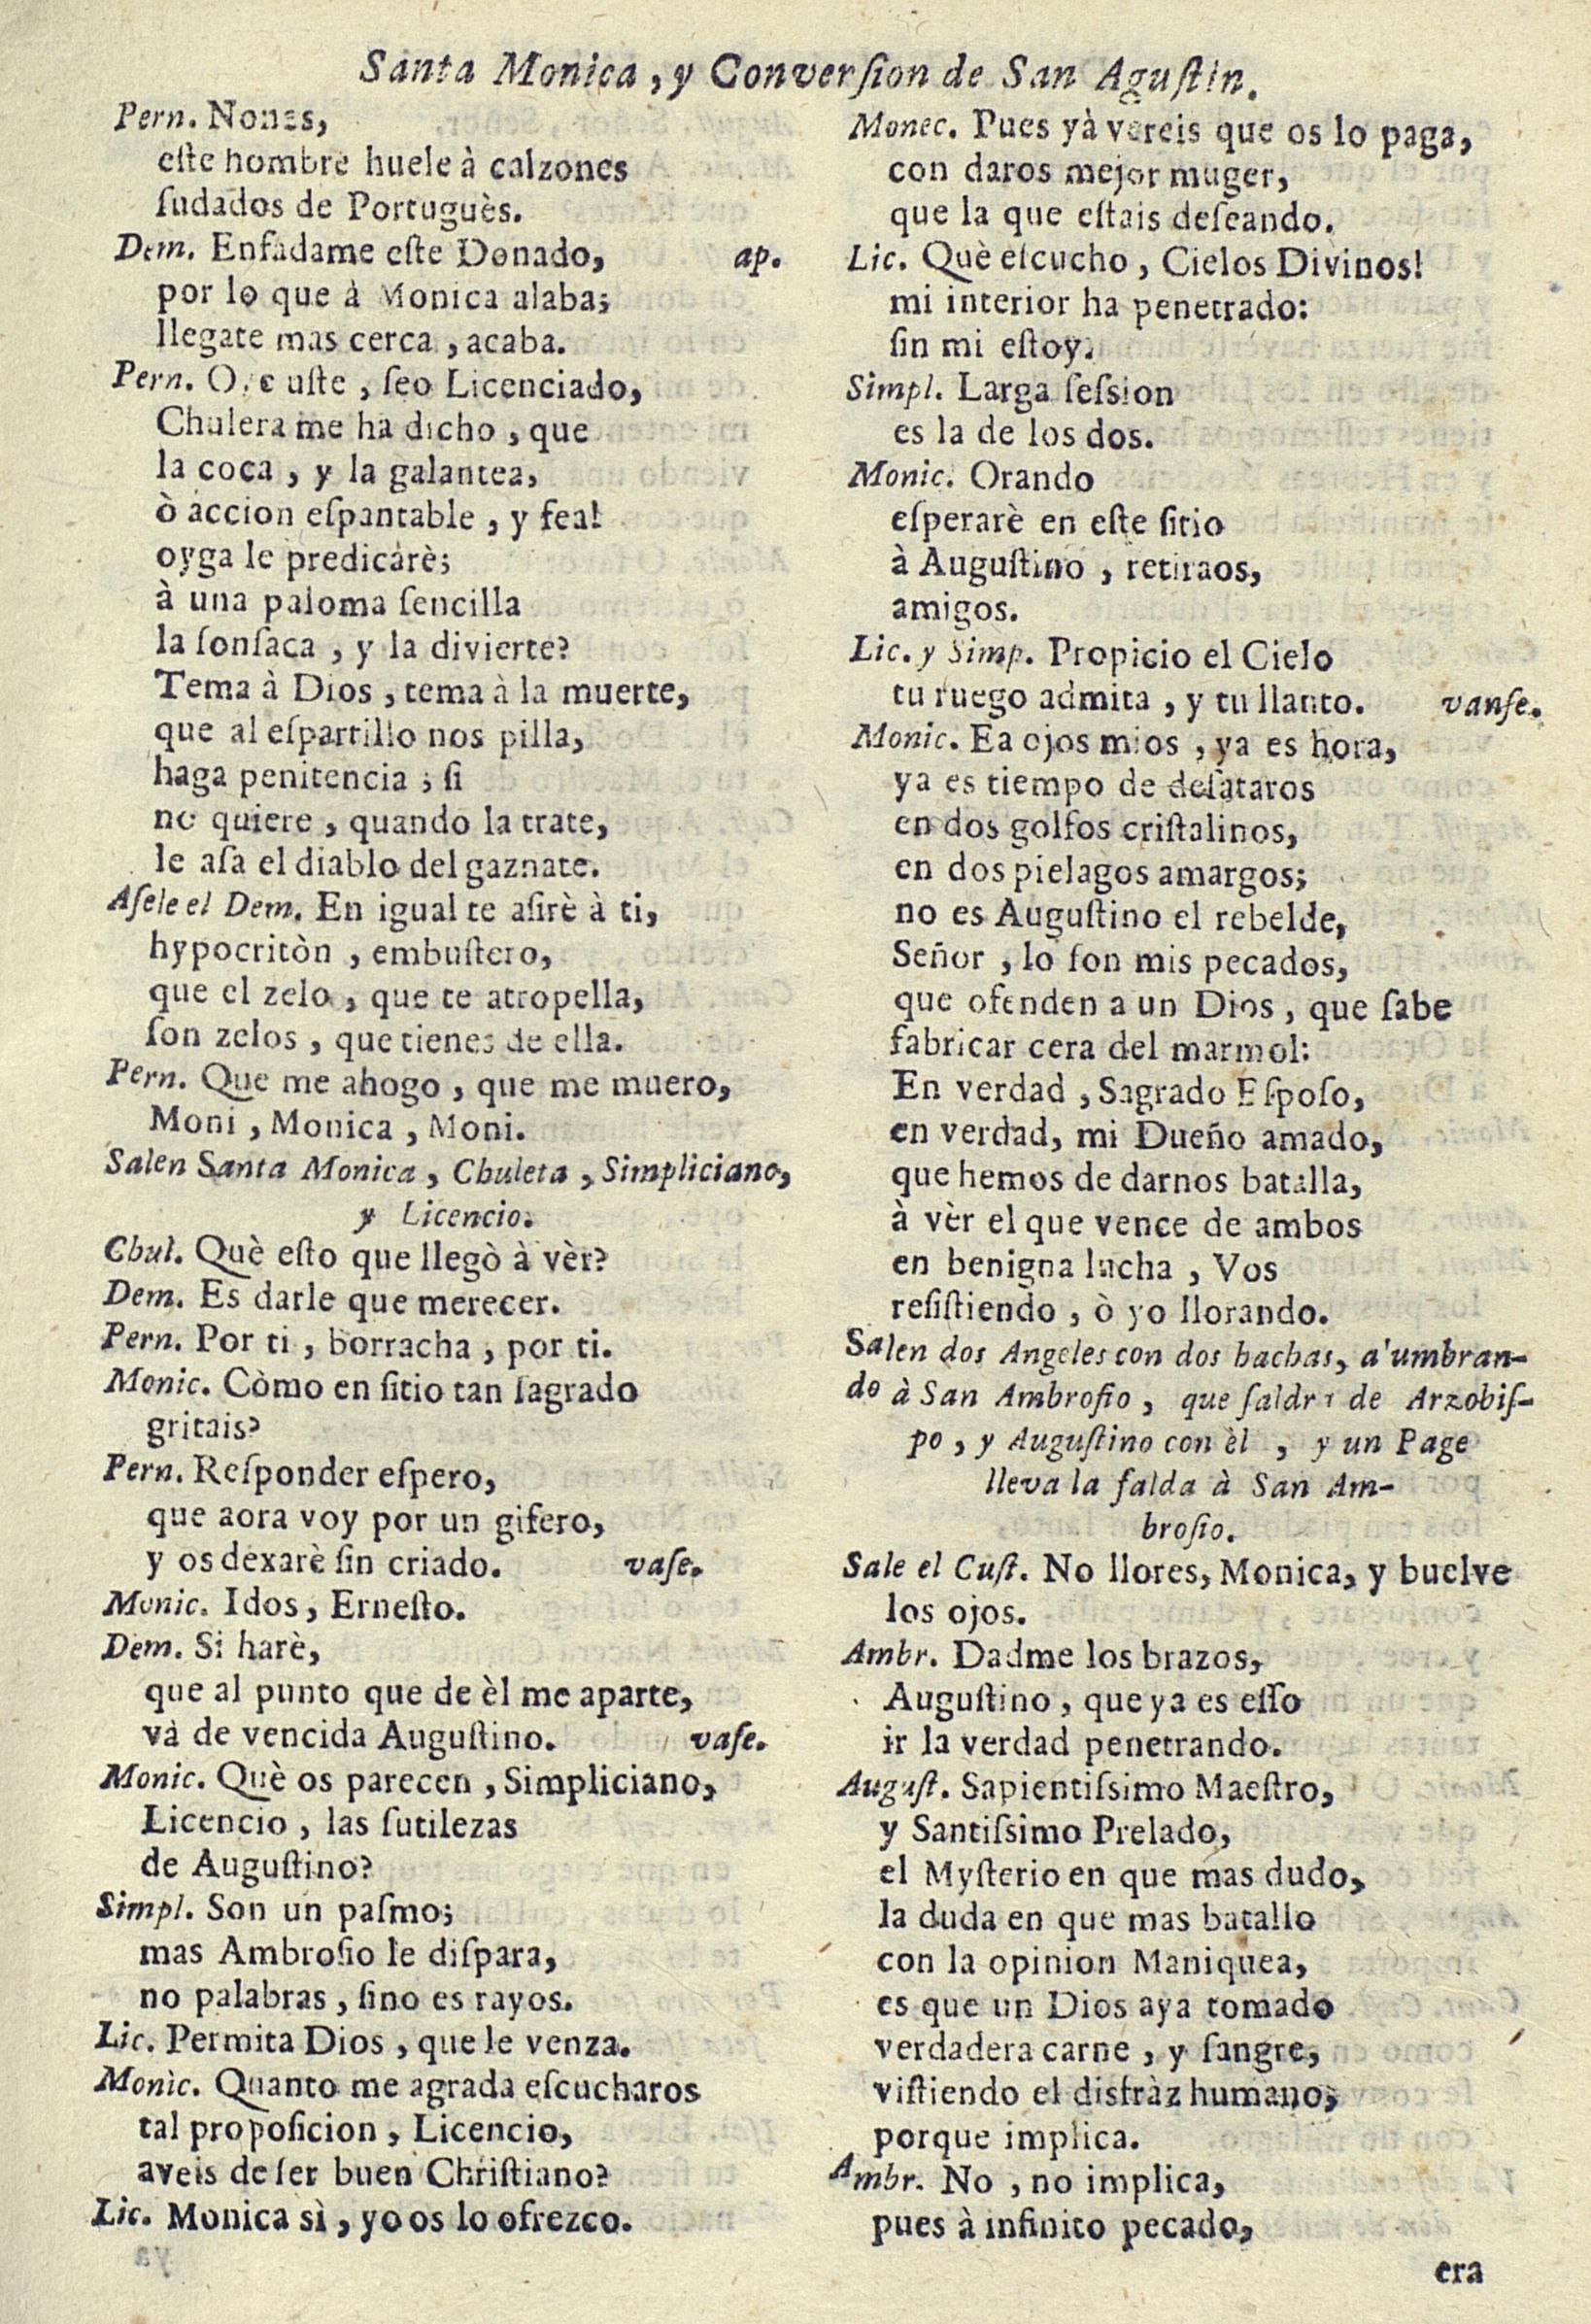 Santa Monica, y Conversion de San Agustin.
Pern. Nones,
este hombre huele à calzones
sudados de Portuguès.
Dem. Enfadame este Donado, ap.
por lo que à Monica alaba;
llegate mas cerca, acaba.
Pern. Oye uste, seo Licenciado,
Chulera me ha dicho, que
la coca, y la galantea,
ò accion espantable, y fea!
oyga le predicarè;
à una paloma sencilla
la sonsaca, y la divierte?
Tema à Dios, tema à la muerte,
que al espartillo nos pilla,
haga penitencia; si
no quiere, quando la trate,
le asa el diablo del gaznate.
Asele el Dem. En igual te asirè à ti,
hypocritòn, embustero,
que el zelo, que te atropella,
son zelos, que tienes de ella.
Pern. Que me ahogo, que me muero,
Moni, Monica, Moni.
Salen Santa Monica, Chuleta, Simpliciano,
y Licencio.
Chul. Què esto que llegò à vèr?
Dem. Es darle que merecer.
Pern. Por ti, borracha, por ti.
Monic. Còmo en sitio tan sagrado
gritais?
Pern. Responder espero,
que aora voy por un gifero,
y os dexarè sin criado. vase.
Monic. Idos, Ernesto.
Dem. Si harè,
que al punto que de èl me aparte,
và de vencida Augustino. vase.
Monic. Què os parecen, Simpliciano,
Licencio, las sutilezas
de Augustino?
Simpl. Son un pasmo;
mas Ambrosio le dispara,
no palabras, sino es rayos.
Lic. Permita Dios, que le venza.
Monic. Quanto me agrada escucharos
tal proposicion, Licencio,
aveis de ser buen Christiano?
Lic. Monica sì, yo os lo ofrezco.
Monec. Pues yà vereis que os lo paga,
con daros mejor muger,
que la que estais deseando.
Lic. Què escucho, Cielos Divinos!
mi interior ha penetrado:
sin mi estoy.
Simpl. Larga session
es la de los dos.
Monic. Orando
esperarè en este sitio
à Augustino, retiraos,
amigos.
Lic. y Simp. Propicio el Cielo
tu ruego admita, y tu llanto. vanse.
Monic. Ea ojos mios, ya es hora,
ya es tiempo de desataros
en dos golfos cristalinos,
en dos pielagos amargos;
no es Augustino el rebelde,
Señor, lo son mis pecados,
que ofenden a un Dios, que sabe
fabricar cera del marmol:
En verdad, Sagrado Esposo,
en verdad, mi Dueño amado,
que hemos de darnos batalla,
à vèr el que vence de ambos
en benigna lucha, Vos
resistiendo, ò yo llorando.
Salen dos Angeles con dos hachas, alumbran-
do à San Ambrosio, que saldrà de Arzobis-
po, y Augustino con èl, y un Page
lleva la falda à San Am-
brosio.
Sale el Cust. No llores, Monica, y buelve
los ojos.
Ambr. Dadme los brazos,
Augustino, que ya es esso
ir la verdad penetrando.
August. Sapientissimo Maestro,
y Santissimo Prelado,
el Mysterio en que mas dudo,
la duda en que mas batallo
con la opinion Maniquea,
es que un Dios aya tomado
verdadera carne, y sangre,
vistiendo el disfràz humano;
porque implica.
Ambr. No, no implica,
pues à infinito pecado,
era